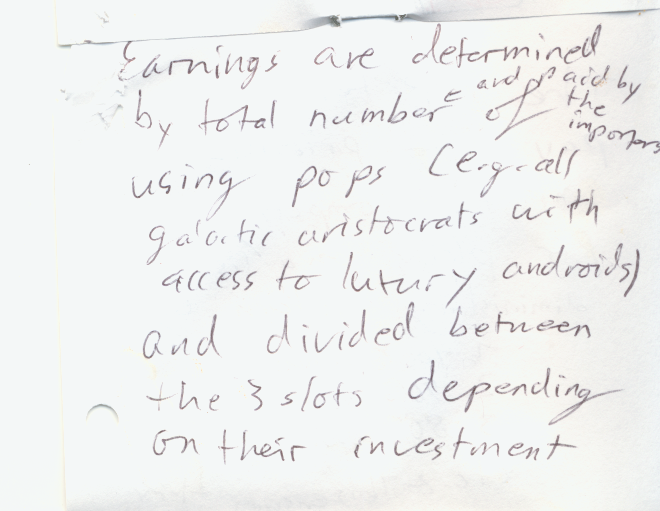 Earnings are determined
by total number of and paid by the importers
using pops (e.g. all
galactic aristocrats with
access to luxury androids)
and divided between
the 3 slots depending
on their investment